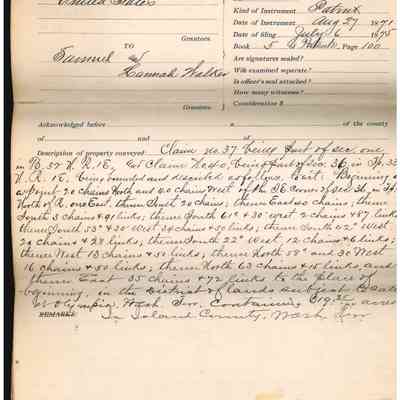 United States
Grantors
TO
Samuel &
Hannah Walker
Grantees
Kind of Instrument Patent
Date of Instrument Aug 27 1871
Date of filing July 6 1875
Book 5 Page 100
Are signatures sealed?
Wife examined separate?
Is officer's seal attached?
How many witnesses?
Consideration $
Acknowledged before a of the county
of and of
Description of property conveyed Claim no. 37 being part of sec one,
in 32 N. R. 1 E, Claim No 40, being Part of Sec 36 in Tp. 33
N. R. 1 E, being bounded and described as follows, to wit: Beginning at
a point 20 chains North and 40 chains West of the S E Corner of Sec 36, in Tp.
North of R. one East, thence South 20 chains; thence East 26 chains; thence
South 5 chains & 91 links; thence South 61° & 30' West 2 chains & 87 links
thence South 53° & 30' West 34 chains & 50 links; thence South 62° West
29 chains & 28 links; thence South 22° West, 12 chains & 6 links;
thence West 13 chains & 50 links; thence North 58° and 30' West
16 chains & 50 links; thence North 63 chains & 15 links, and
thence East 35 chains & 72 links to the place of
beginning, in the District of lands subject to sale
at Olympia, Wash Terr. Containing 319 acres
REMARKS: In Island County, Wash Terr